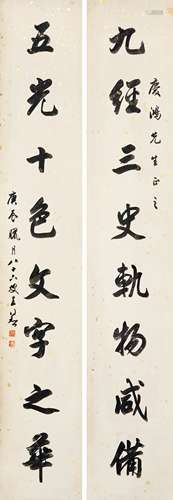 九經三史軌物咸備
慶鴻先生正之
五光十色文字之華
庚辰風月八十六叟王